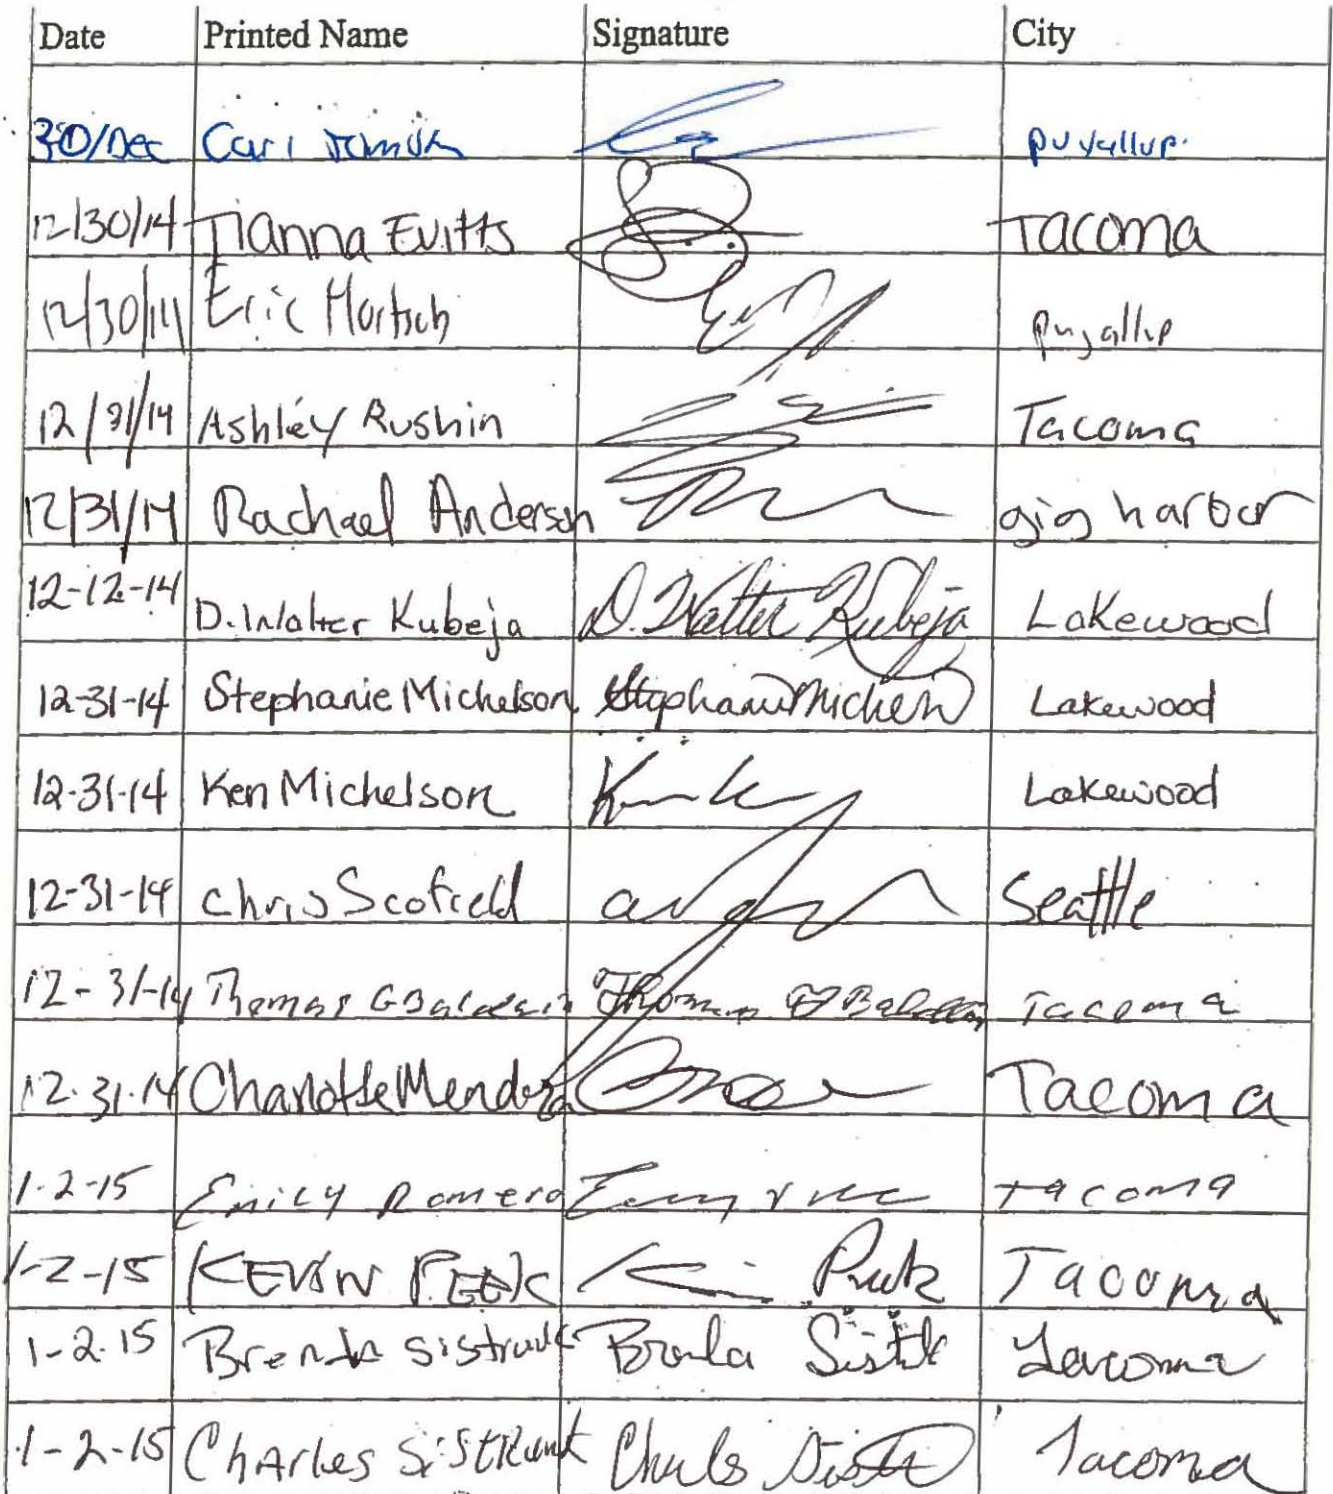 Date Printed Name Signature City
30/Dec Cari puyallup.
12/30/14 Tianna Evitts Tacoma
12/30/14 Eric Hortsch puyallup
12/31/14 Ashley Rushin Tacoma
12/31/14 Rachael Anderson gig harbor
12-12-14 D. Walter Kubeja D. Walter Kubeja Lakewood
12-31-14 Stephanie Michelson Stephanie Lakewood
12-31-14 Ken Michelson Lakewood
12-31-14 Chris Scofield Seattle
12-31-14 Thomas G Baldwin Thomas G Baldwin Tacoma
12.31.14 Charlotte Mendoza Tacoma
1-2-15 Emily Romero Tacoma
1-2-15 KEVIN PEEK Tacoma
1-2-15 Brenda Sistrunk Brenda Tacoma
1-2-15 Charles Sistrunk Charles Tacoma